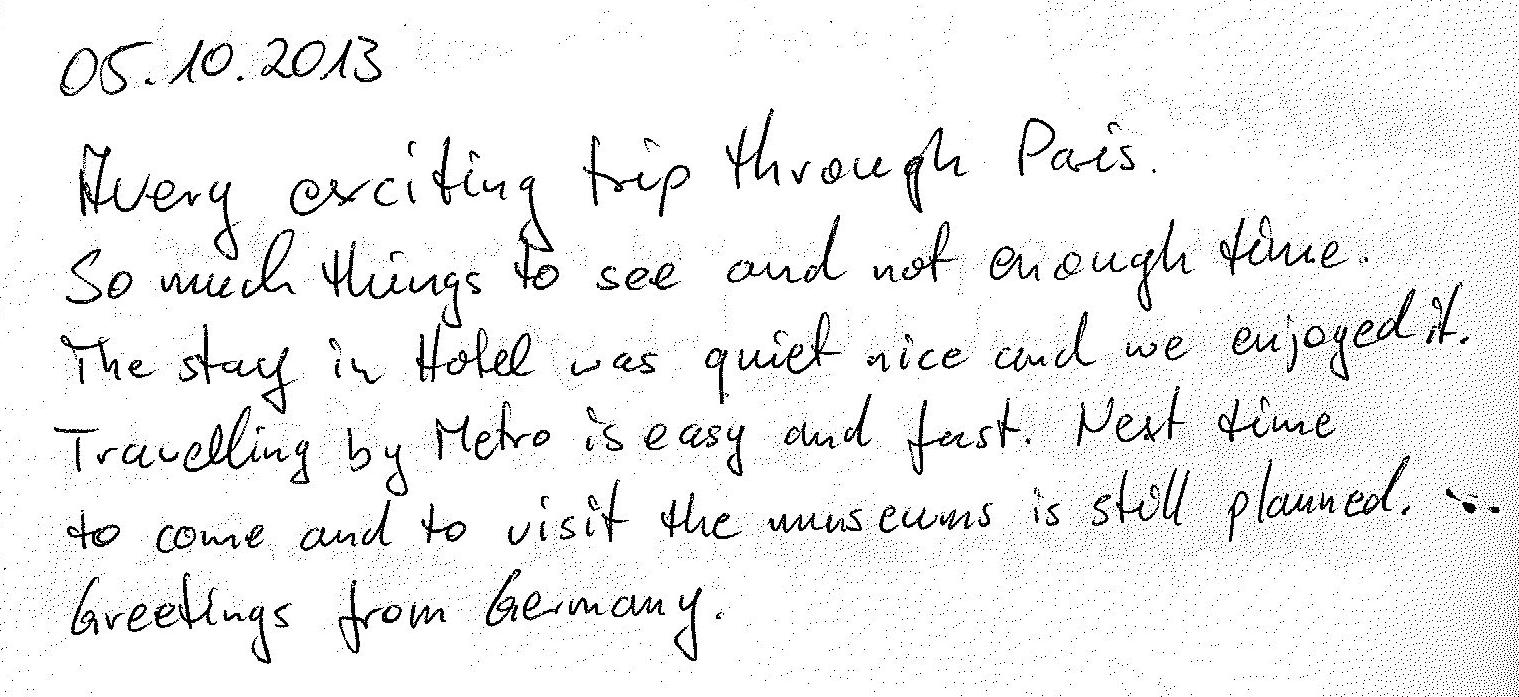 05.10.2013
A very exciting trip through Pais.
So much things to see and not enough time.
The stay in Hotel was quiet nice and we enjoyed it.
Travelling by Metro is easy and fast. Next time
to come and to visit the museums is still planned. ...
Greetings from Germany.